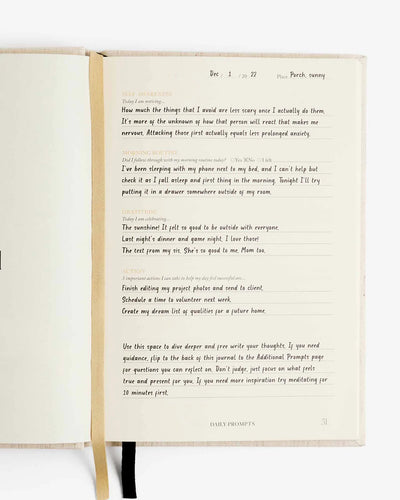 Dec / 1 / 20 22 Place Porch, sunny
SELF-AWARENESS
Today I am noticing...
How much the things that I avoid are less scary once I actually do them.
It's more of the unknown of how that person will react that makes me
nervous. Attacking those first actually equals less prolonged anxiety.
MORNING ROUTINE
Did I follow through with my morning routine today? Yes No 1 left
I've been sleeping with my phone next to my bed, and I can't help but
check it as I fall asleep and first thing in the morning. Tonight I'll try
putting it in a drawer somewhere outside of my room.
GRATITUDE
Today I am celebrating...
The sunshine! It felt so good to be outside with everyone.
Last night's dinner and game night, I love those!
The text from my sis. She's so good to me. Mom too.
ACTION
3 important actions I can take to help my day feel successful are...
Finish editing my project photos and send to client.
Schedule a time to volunteer next week.
Create my dream list of qualities for a future home.
Use this space to dive deeper and free write your thoughts. If you need
guidance, flip to the back of this journal to the Additional Prompts page
for questions you can reflect on. Don't judge, just focus on what feels
true and present for you. If you need more inspiration try meditating for
10 minutes first.
DAILY PROMPTS 51